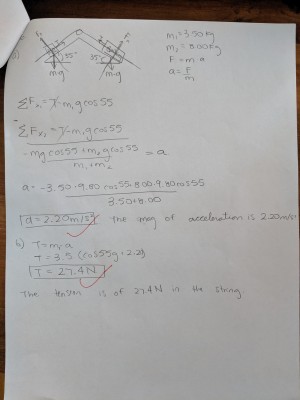 a)
m₁=3.50 kg
m₂=8.00 kg
F = m a
a = F/m
35°
35°
mg
mg
ΣFₓ₁ = T - m₁g cos55
ΣFₓ₂ = T - m₁g cos55
-mg cos55 + m₂g cos55 / m₁ + m₂ = a
a = -3.50·9.80 cos55 + 8.00·9.80 cos55 / 3.50 + 8.00
a = 2.20 m/s² The mag of acceleration is 2.20 m/s²
b) T = m₁a
T = 3.5 (cos55g + 2.2)
T = 27.4 N
The tension is of 27.4 N in the string.